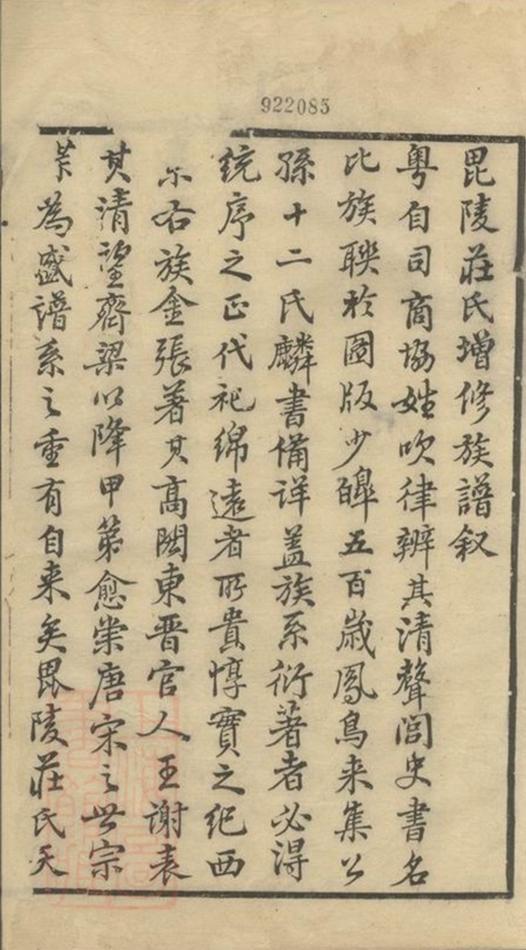 922085
毘陵莊氏增修族譜叙
粵自司商協姓吹律辨其清聲閭史書名
比族聯於圖版少皞五百歲鳳鳥来集公
孫十二氏麟書備详蓋族系衍著者必得
統序之正代祀綿遠者所貴惇實之纪西
右族金張著其高閎東晋官人王謝表
其清望齊梁以降甲第愈崇唐宋之世宗
為盛譜系之重有自来矣毘陵莊氏天